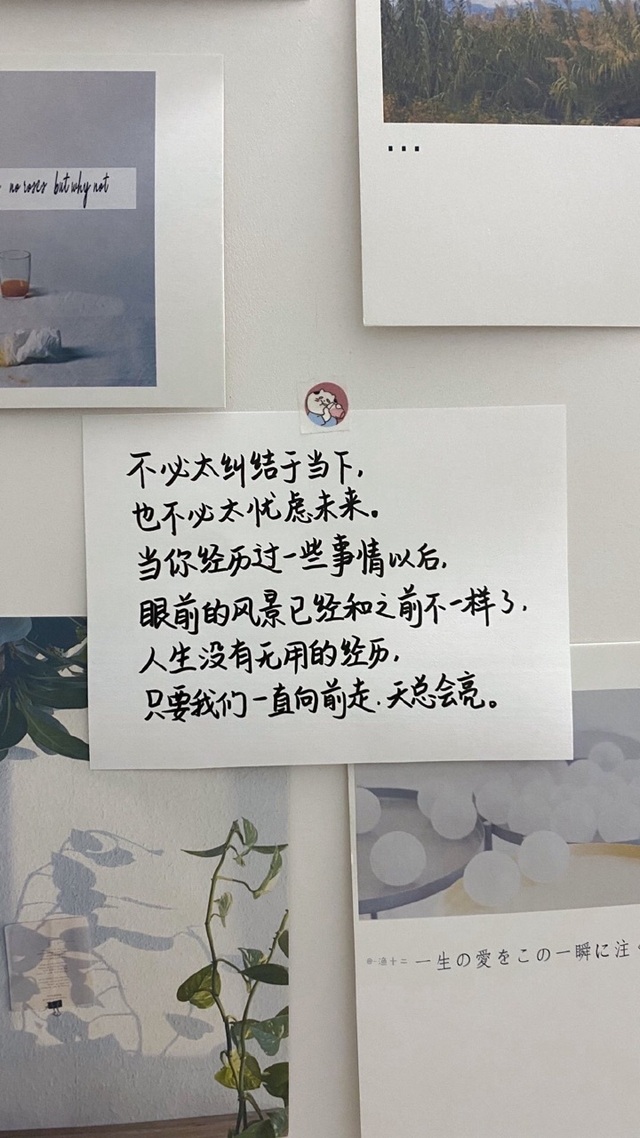 no roses but why not
...
不必太纠结于当下，
也不必太忧虑未来。
当你经历过一些事情以后，
眼前的风景已经和之前不一样了，
人生没有无用的经历，
只要我们一直向前走，天总会亮。
一生の愛をこの一瞬に注